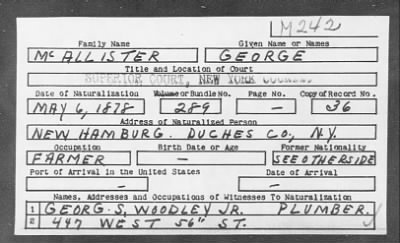 M242
Family Name Given Name or Names
McALLISTER GEORGE
Title and Location of Court
SUPERIOR COURT, NEW YORK COUNTY.
Date of Naturalization Volume or Bundle No. Page No. Copy of Record No.
MAY 6, 1878 289 — 36
Address of Naturalized Person
NEW HAMBURG. DUCHES CO., N.Y.
Occupation Birth Date or Age Former Nationality
FARMER — SEE OTHERSIDE
Port of Arrival in the United States Date of Arrival
— —
Names, Addresses and Occupations of Witnesses To Naturalization
1 GEORG. S, WOODLEY JR. PLUMBER.
2 447 WEST 56" ST.